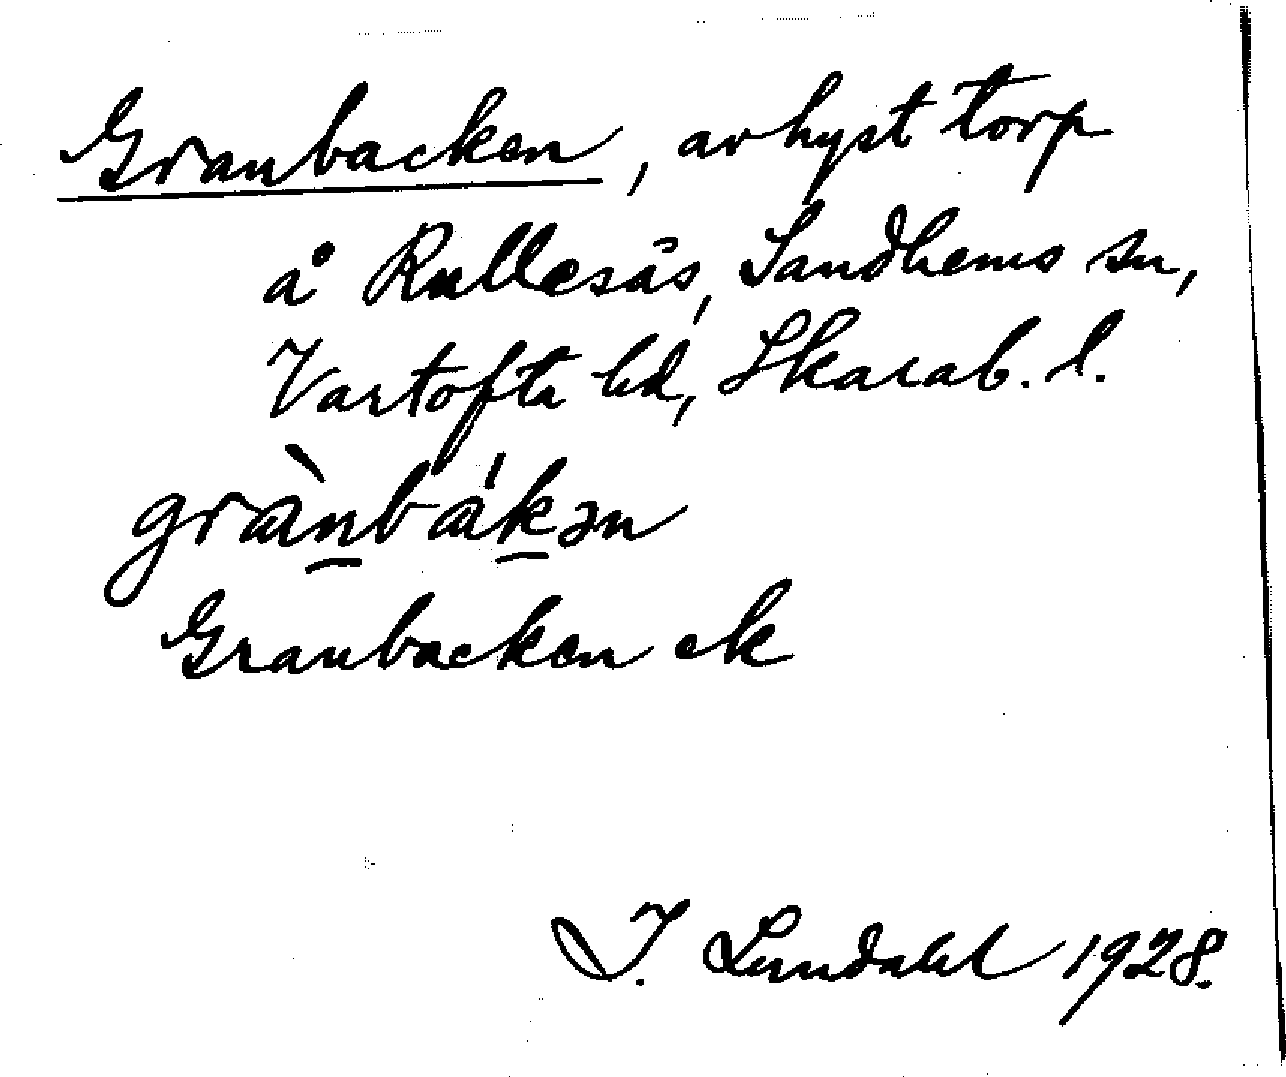 Granbacken, avhyst torp
å Rullesås, Sandhems sn,
Vartofta hd, Skarab. l.
gràn̲bák̲ən
Granbacken ek
I. Lundahl 1928.